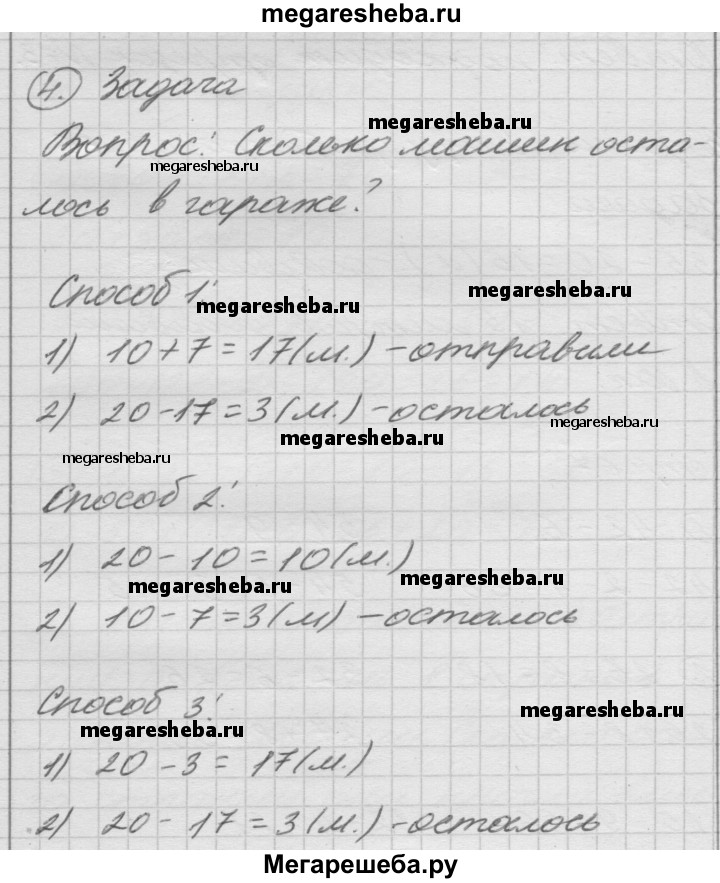 megaresheba.ru
4. Задача
megaresheba.ru
Вопрос: Сколько машин оста-
megaresheba.ru
лось в гараже?
Способ 1:
megaresheba.ru
megaresheba.ru
1) 10+7=17(м.) - отправили
2) 20-17=3(м.) - осталось
megaresheba.ru
megaresheba.ru
megaresheba.ru
Способ 2:
1) 20-10=10(м.)
megaresheba.ru
megaresheba.ru
2) 10-7=3(м) - осталось
Способ 3:
megaresheba.ru
megaresheba.ru
1) 20-3=17(м.)
2) 20-17=3(м.) - осталось
Мегарешеба.ру